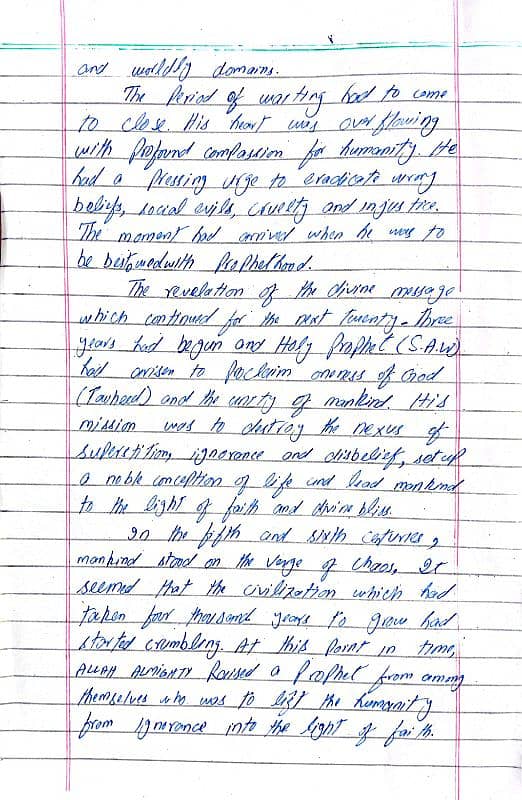 and worldly domains.
The Period of waiting had to come
to close. His heart was overflowing
with Profound compassion for humanity. He
had a Pressing urge to eradicate wrong
beliefs, social evils, cruelty and injustice.
The moment had arrived when he was to
be bestowed with Prophethood.
The revelation of the divine message
which continued for the next Twenty-Three
years had begun and Holy Prophet (S.A.W)
had arisen to Proclaim oneness of God
(Tauheed) and the unity of mankind. His
mission was to destroy the nexus of
superstition, ignorance and disbelief, set up
a noble conception of life and lead mankind
to the light of faith and divine bliss.
In the fifth and sixth centuries,
mankind stood on the verge of chaos. It
seemed that the civilization which had
taken four thousand years to grow had
started crumbling. At this Point in time,
ALLAH ALMIGHTY Raised a Prophet from among
themselves who was to lift the humanity
from Ignorance into the light of faith.